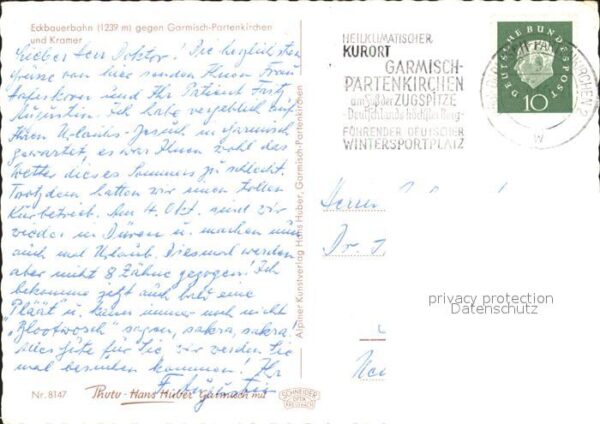 Eckbauerbahn (1239 m) gegen Garmisch-Partenkirchen
und Kramer
Lieber Herr Doktor! Die herzlichsten
Grüsse von hier senden Ihnen Frau
und Ihr Patient Fritz
Augustin. Ich habe vergeblich auf
Ihren Urlaubs-Besuch in Garmisch
gewartet, es war Ihnen wohl das
Wetter dieses Sommers zu schlecht.
Trotzdem hatten wir einen tollen
Kurbetrieb. Am 4. Okt. sind wir
wieder in Düren u. machen nun
auch mal Urlaub. Diesmal werden
aber nicht 8 Zähne gezogen! Ich
bekomme jetzt auch bald eine
Pläät u. kann immer noch nicht
„Blootwosch" sagen, sakra, sakra!
Alles Gute für Sie, wir werden Sie
mal besuchen kommen! Ihr
F. Augustin
Nr. 8147
Photo - Hans Huber Garmisch mit
SCHNEIDER
OPTIK
KREUZNACH
Alpiner Kunstverlag Hans Huber, Garmisch-Partenkirchen
HEILKLIMATISCHER
KURORT
GARMISCH-
PARTENKIRCHEN
am Fuß der ZUGSPITZE
-Deutschlands höchster Berg-
FÜHRENDER DEUTSCHER
WINTERSPORTPLATZ
DEUTSCHE BUNDESPOST
10
w
Herrn
Dr. J
privacy protection
Datenschutz